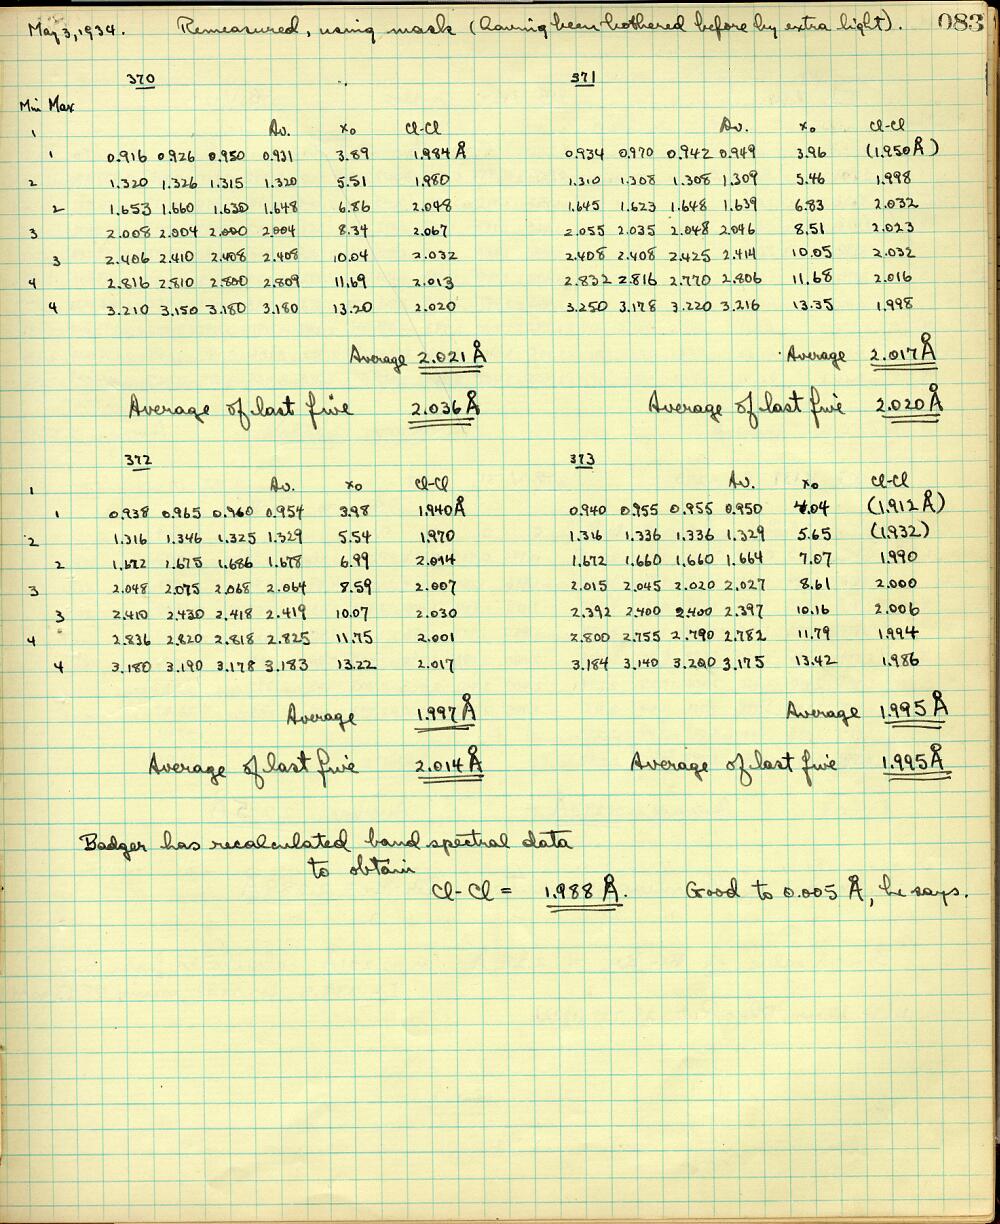 May 3, 1934. Remeasured, using mask (having been bothered before by extra light). 083
370 371
Min Max
Av. x₀ Cl-Cl Av. x₀ Cl-Cl
1
1 0.916 0.926 0.950 0.931 3.89 1.984 Å 0.934 0.970 0.942 0.949 3.96 (1.950 Å)
2 1.320 1.326 1.315 1.320 5.51 1.980 1.310 1.308 1.308 1.309 5.46 1.998
2 1.653 1.660 1.630 1.648 6.86 2.048 1.645 1.623 1.648 1.639 6.83 2.032
3 2.008 2.004 2.000 2.004 8.34 2.067 2.055 2.035 2.048 2.046 8.51 2.023
3 2.406 2.410 2.408 2.408 10.04 2.032 2.408 2.408 2.425 2.414 10.05 2.032
4 2.816 2.810 2.800 2.809 11.69 2.013 2.832 2.816 2.770 2.806 11.68 2.016
4 3.210 3.150 3.180 3.180 13.20 2.020 3.250 3.178 3.220 3.216 13.35 1.998
Average 2.021 Å Average 2.017 Å
Average of last five 2.036 Å Average of last five 2.020 Å
372 373
Av. x₀ Cl-Cl Av. x₀ Cl-Cl
1
1 0.938 0.965 0.960 0.954 3.98 1.940 Å 0.940 0.955 0.955 0.950 4.04 (1.912 Å)
2 1.316 1.346 1.325 1.329 5.54 1.970 1.316 1.336 1.336 1.329 5.65 (1.932)
2 1.672 1.675 1.686 1.678 6.99 2.014 1.672 1.660 1.660 1.664 7.07 1.990
3 2.048 2.075 2.068 2.064 8.59 2.007 2.015 2.045 2.020 2.027 8.61 2.000
3 2.410 2.430 2.418 2.419 10.07 2.030 2.392 2.400 2.400 2.397 10.16 2.006
4 2.836 2.820 2.818 2.825 11.75 2.001 2.800 2.755 2.790 2.782 11.79 1.994
4 3.180 3.190 3.178 3.183 13.22 2.017 3.184 3.140 3.200 3.175 13.42 1.986
Average 1.997 Å Average 1.995 Å
Average of last five 2.014 Å Average of last five 1.995 Å
Badger has recalculated band spectral data
to obtain
Cl-Cl = 1.988 Å. Good to 0.005 Å, he says.